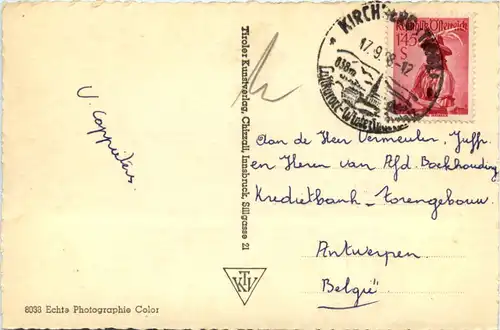 KIRCHBERG
17.9.58-12
838m
Luftkurort-Wintersport
Republik Österreich
1.45
S
V. Cappuiters.
Tiroler Kunstverlag, Chizzali, Innsbruck, Sillgasse 21
Aan de Heer Vermeulen, Juffr.
en Heren van Afd Boekhouding
Kredietbank - Torengebouw.
Antwerpen
België
TKV
8038 Echte Photographie Color